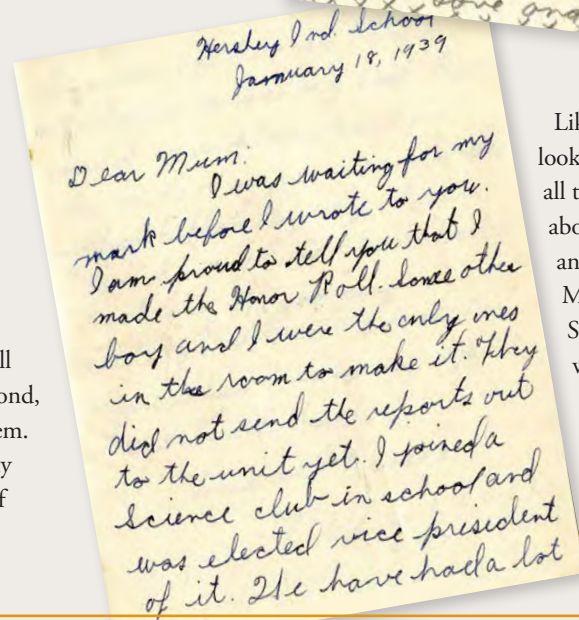 love and
Hershey Ind. School
January 18, 1939
Dear Mum:
I was waiting for my
mark before I wrote to you.
I am proud to tell you that I
made the Honor Roll. Some other
boy and I were the only ones
in the room to make it. They
did not send the reports out
to the unit yet. I joined a
Science club in school and
was elected vice president
of it. We have had a lot
ll
ond,
em.
y
f
Lik
look
all t
abo
an
M
S
w